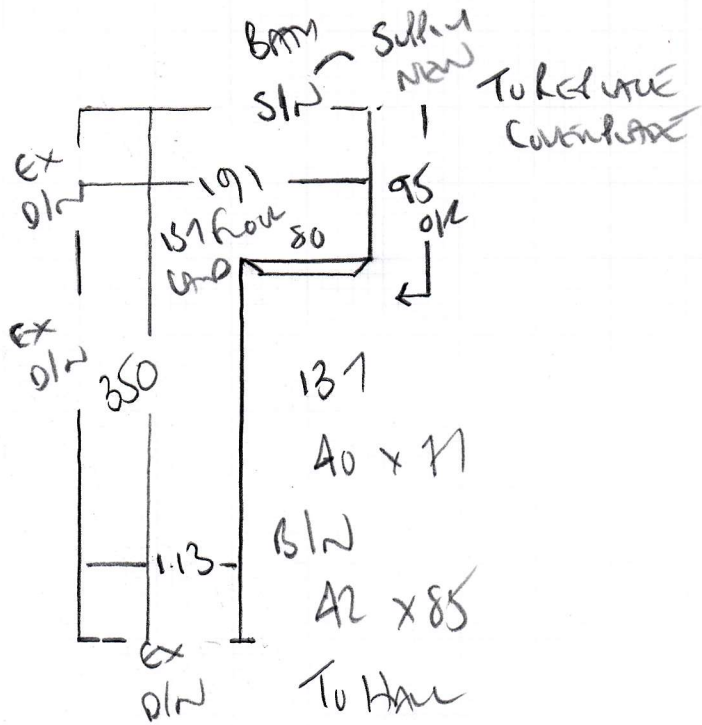 BATH SUPPLY
NEW
S/N
TO REPLACE
COVERPLATE
EX
D/N
191
95
O/R
1ST FLOOR
LAND
80
EX
D/N
350
137
40 x 71
B/N
1.13
42 x 85
EX
D/N
TO HALL